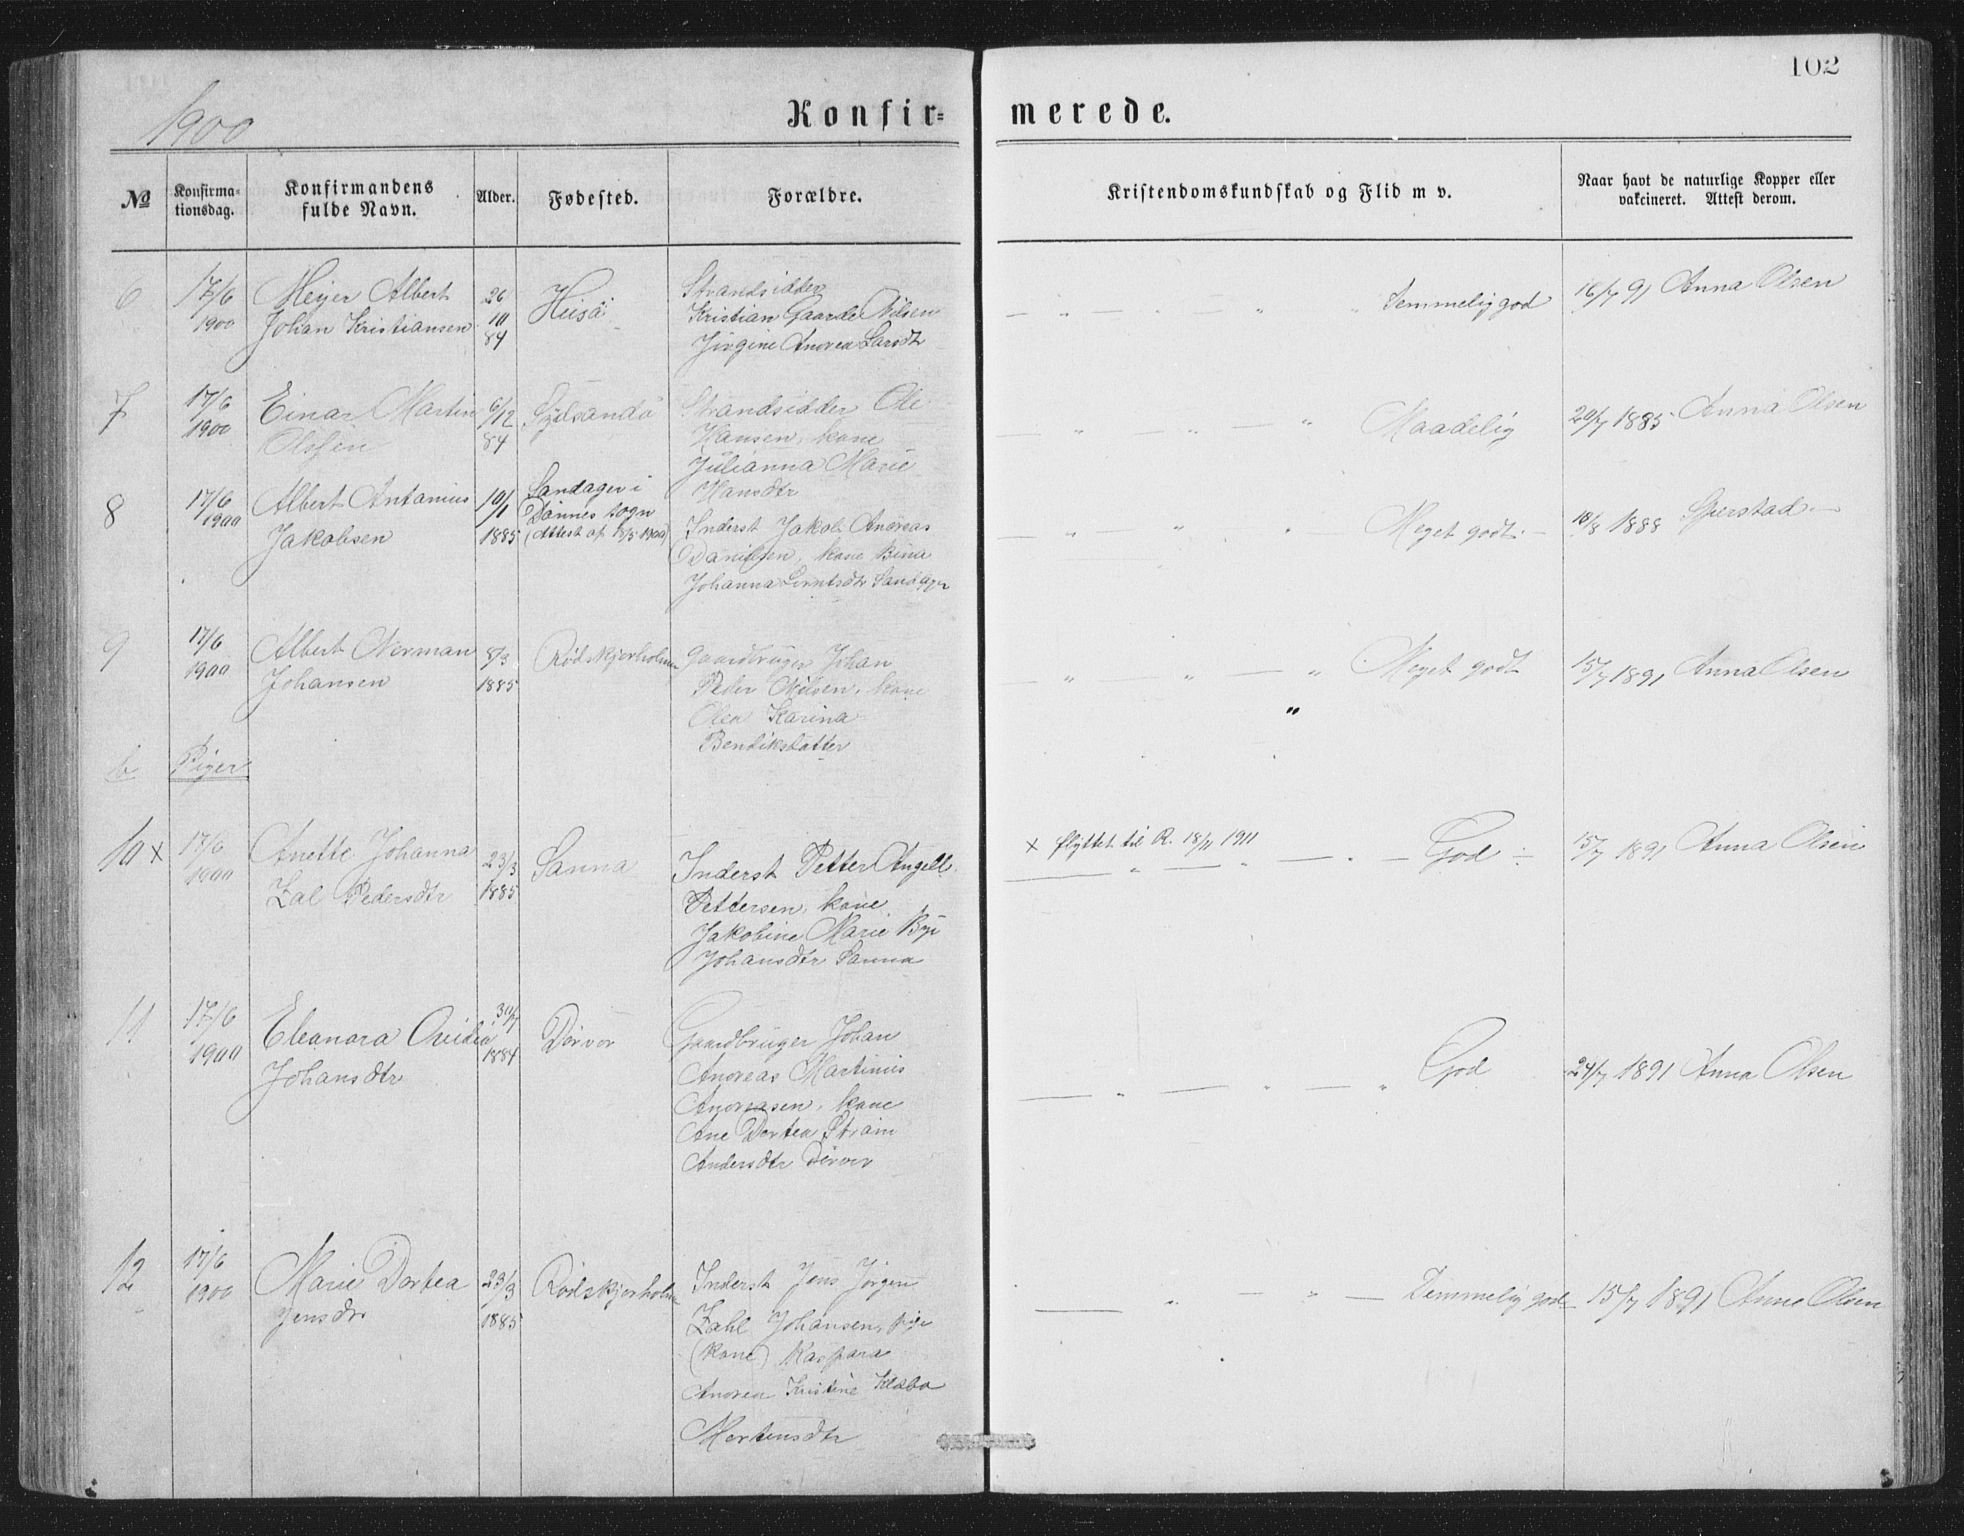 102
1900
Konfir= merede.
№
Konfirma-
tionsdag.
Konfirmandens
fulde Navn.
Alder.
Fødested.
Forældre.
Kristendomskundskab og Flid m v.
Naar havt de naturlige Kopper eller
vakcineret. Attest derom.
6 17/6 Meyer Albert 26 Husö Strandsidder
1900 Johan Kristiansen 10 Kristian Gaarde Nilsen
84 Jörgine Andrea Larsdtr
Temmelig god 16/7 91 Anna Olsen
7 17/6 Einar Martin 6/12 Sydsandö Strandsidder Ole
1900 Olsen 84 Hansen, kone
Julianna Marie
Hansdtr
Maadelig 20/7 1885 Anna Olsen
8 17/6 Albert Antanius 10/1 Sandager i
1900 Jakobsen 1885 Dönnes sogn
(Attest af 18/5 1900)
Inderst Jakob Andreas
Danielsen, kone Bina
Johanna Berntsdtr Sandager
Meget godt. 18/8 1888
9 17/6 Albert Nerman 8/3 Rødskjærholmen Gaardbruger Johan
1900 Johansen 1885 Peder Nilsen, kone
Olea Karina
Bendiksdatter
Meget godt 15/7 1891 Anna Olsen
b Piger
10 x 17/6 Anette Johanna 23/3 Sanna Inderst Petter Angell
1900 Zal Pedersdtr 1885 Pettersen, kone
Jakobine Marie
Johansdtr Sanna
x flyttet til R. 18/11 1911
God 15/7 1891 Anna Olsen
11 17/6 Eleanora Ovidia 30/7 Dörvær Gaardbruger Johan
1900 Johansdtr 1884 Andreas Martinus
Andreasen, kone
Ane Dortea Ström
Andersdtr Dörvær
God 24/7 1891 Anna Olsen
12 17/6 Marie Dortea 23/3 Rødskjærholmen Inderst Jens Jörgen
1900 Jensdtr 1885 Zahl Johansen, pige
(kone) Kaspara
Andrea Kristine Klæbo
Mortensdtr
Temmelig god 15/7 1891 Anna Olsen